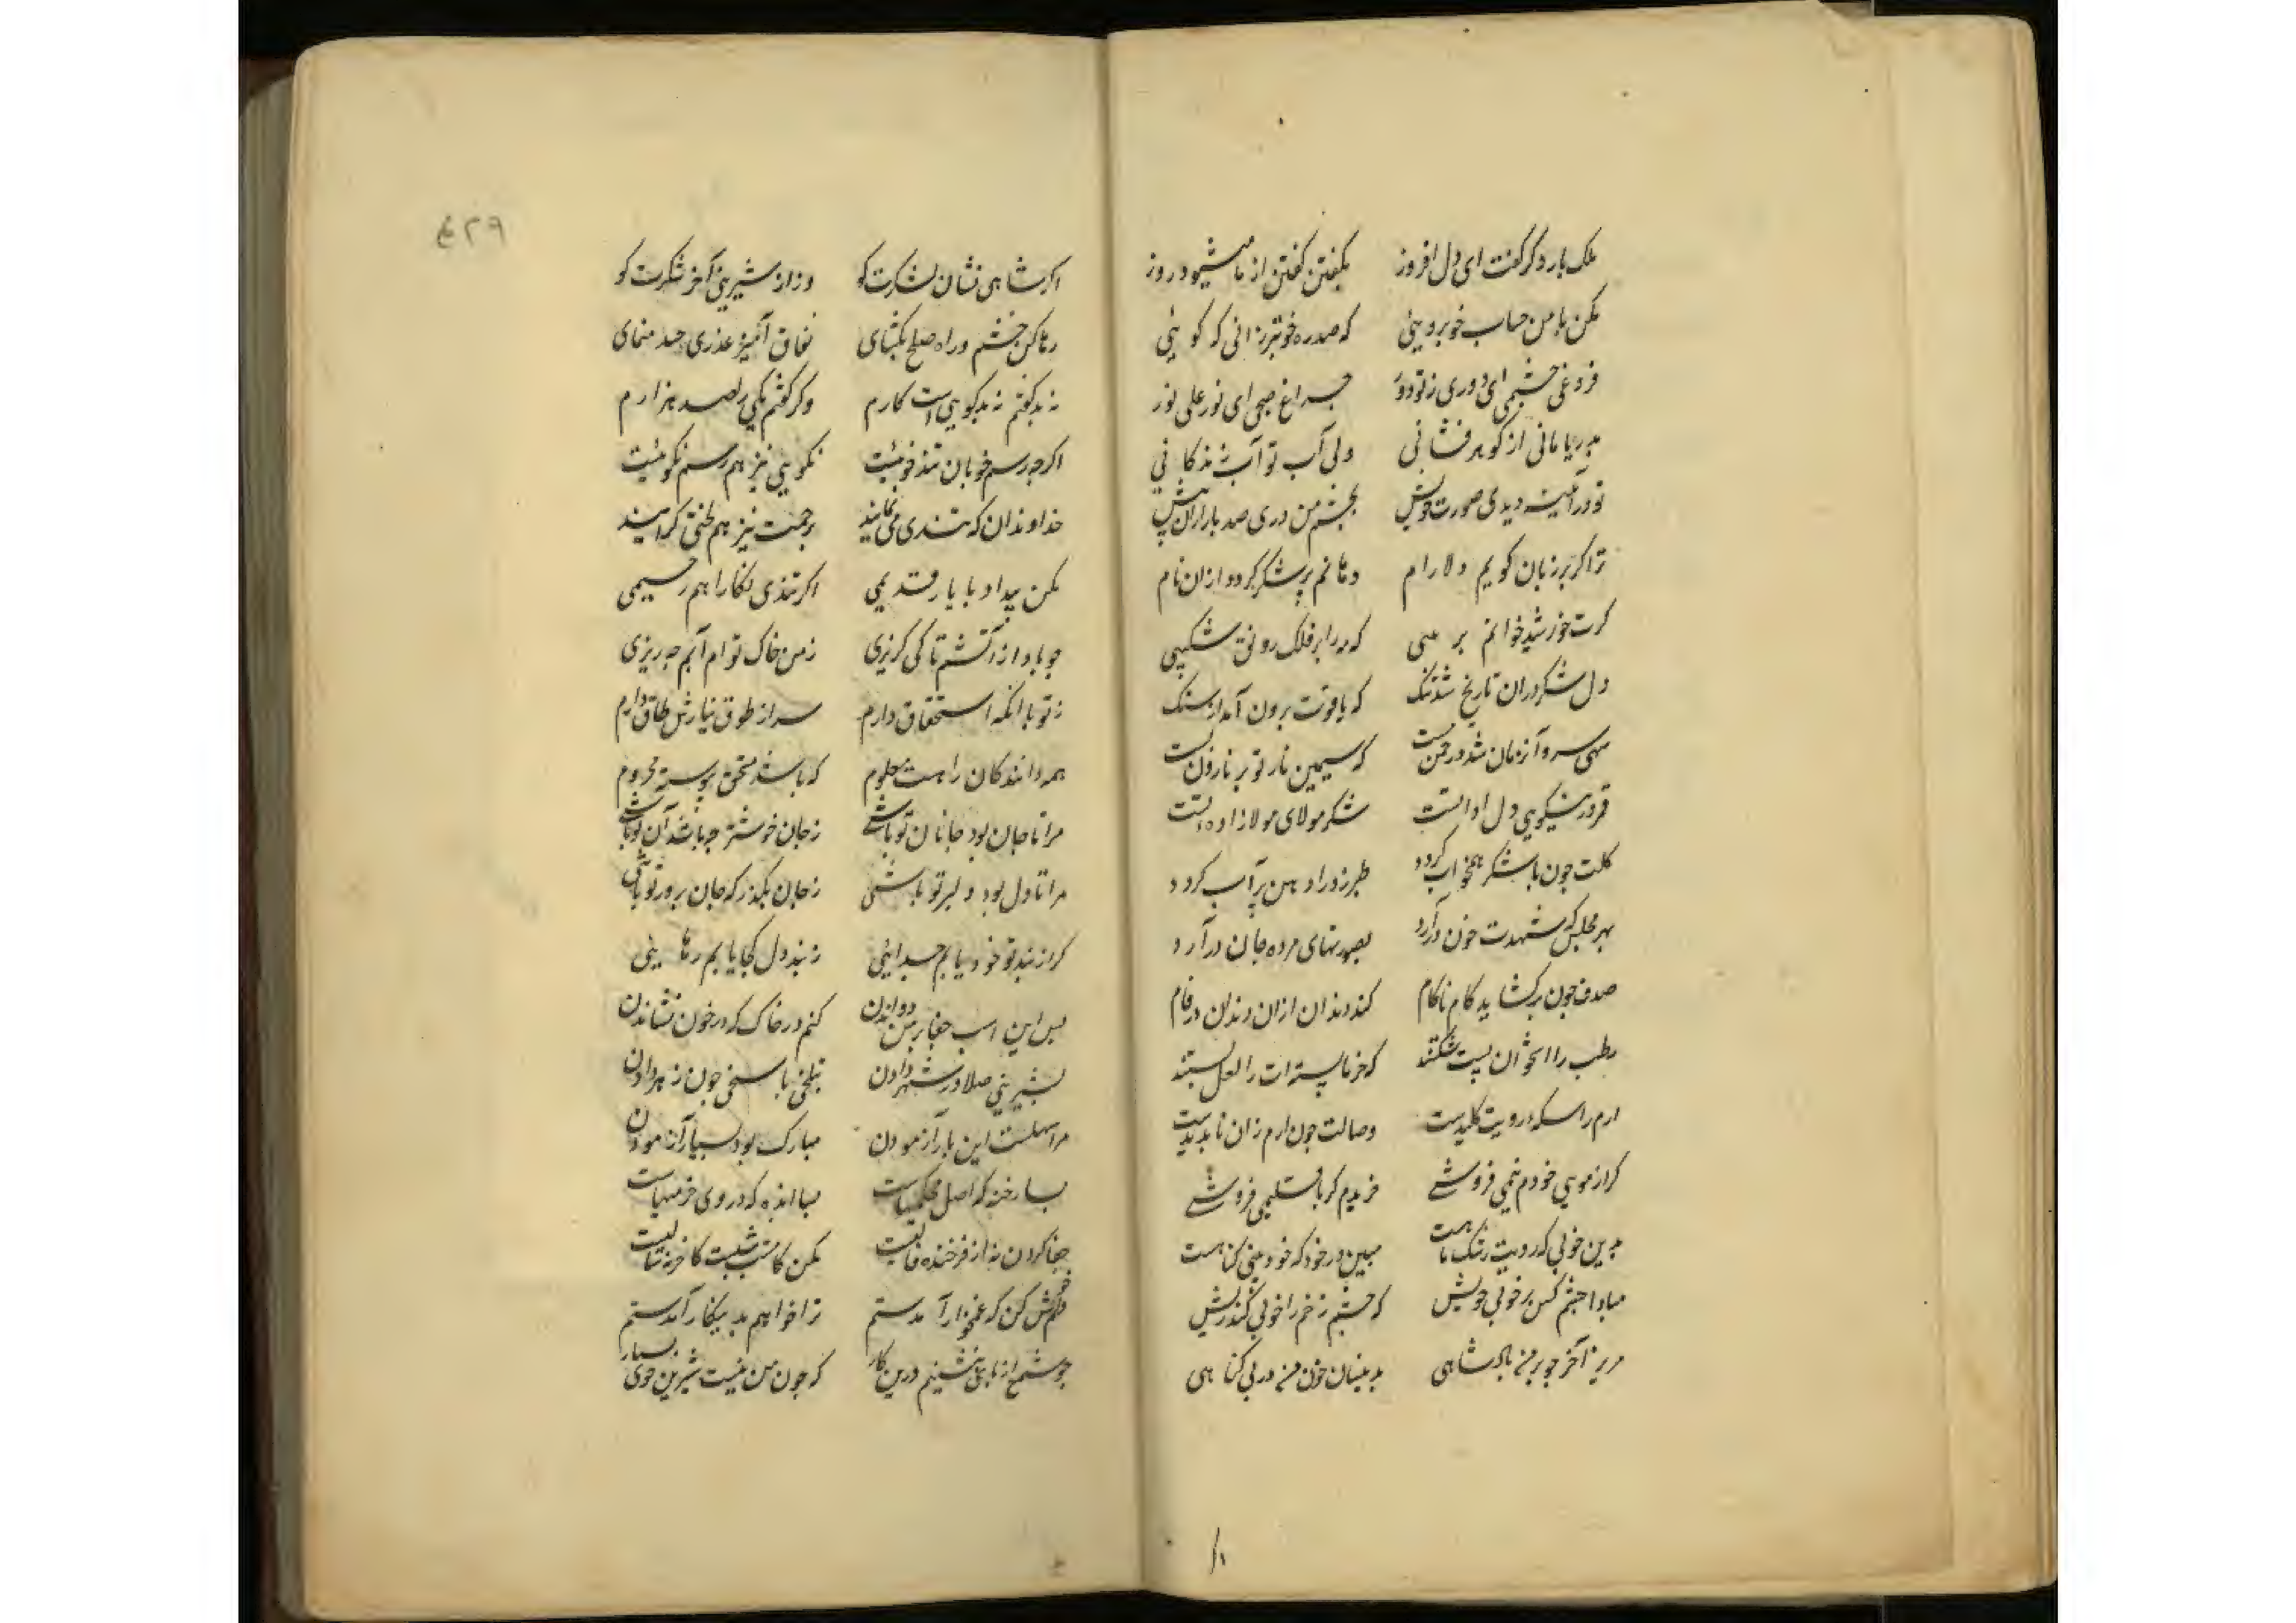 ملک بار دگر گفت ای دل افروز بگفتن گفتن از ما میشود روز
مکن با من حساب خوبرویی که صد ره خوبتر زانی که گویی
فروغی چشمی ای دوری ز تو دور چراغ صبحی ای نور علی نور
بدریا مانی از گوهر فشانی ولی آب تو آب زندگانی
تو در آیینه دیدی صورت خویش بچشم من دری صد بار ازان پیش
ترا گر بر زبان گویم دلارام دهانم پر شکر گردد ازان نام
گرت خورشید خوانم بر که مه را بر فلک رونق شکیبی
دل شکر دران تاریخ شد تنگ که یاقوت برون آمد از سنگ
سهی سرو آن زمان شد در چمن سست که سیمین نار تو بر نارون رست
قمر در نیکویی دل داده تست شکر مولای مولازاده تست
گلت چون با شکر همخواب گردد طبرزد را دهن پر آب گردد
بهر مجلس که شهدت خون درآرد بصورتهای مرده جان درآرد
صدف چون بر گشاید کام ناکام کند دندان ازان دندان در فام
رطب را استخوان پست شکستند که خرما پسته ات را لعل بستند
ارم را سکه رویت کلیدست وصالت چون ارم زان ناپدیدست
گر از مویی خودم نمی فروشی خریدم گر باقلیمی فروشی
بدین خوبی که رویت رشک ماهست مبین در خود که خودبینی گناهست
مبادا چشم کس بر خوبی خویش که چشم زخم را خوبی کند ریش
مریز آخر چو بر من پادشاهی بدینسان خون من در بی گناهی
اگر شاهی نشان لشکرت کو وزان شیرینی آخر شکرت کو
رها کن خشم و راه صلح بگشای نفاق آمیز عذری چند منمای
نه بد گفتم نه بدگویی است کارم وگر گفتم یکی را صد هزارم
اگرچه رسم خوبان تندخوئیست نکویی نیز هم رسم نکوئیست
خداوندان که تندی می نمایند برحمت نیز هم لختی گرایند
مکن بیداد با یار قدیمی اگر تندی نگارا هم رحیمی
چو باد از آتشم تا کی گریزی ز من خاک تو ام آبم چه ریزی
ز تو با آنکه استحقاق دارم سر از طوق نیازش طاق دارم
همه دانندگان را هست معلوم که باشد مستحق پیوسته محروم
مرا تا جان بود جانان تو باشی ز جان خوشتر چه باشد آن تو باشی
مرا تا دل بود دلبر تو باشی ز جان بگذر که جان پرور تو باشی
گر از بند تو خود یابم جدایی ز بند دل کجا یابم رهایی
بس این اسب جفا بر من دواندن گهم در خاک گه در خون نشاندن
بشیرینی صلا در شهر دادن بتلخی پاسخی چون زهر دادن
مرا سهلست این بار آزمودن مبارک بود بسیار آزمودن
بسا رخنه که اصل محکمیهاست بسا انده که در وی خرمیهاست
جفا کردن نه از فرخنده فالیست مکن کامشب شبست کاخر نه سالیست
فراموش کن که غمخوار آمدستم ترا خواهم به پیکار آمدستم
چو شمع از پای ننشینم درین کار که چون من نیست شیرین خوی بسیار
۴۲۹